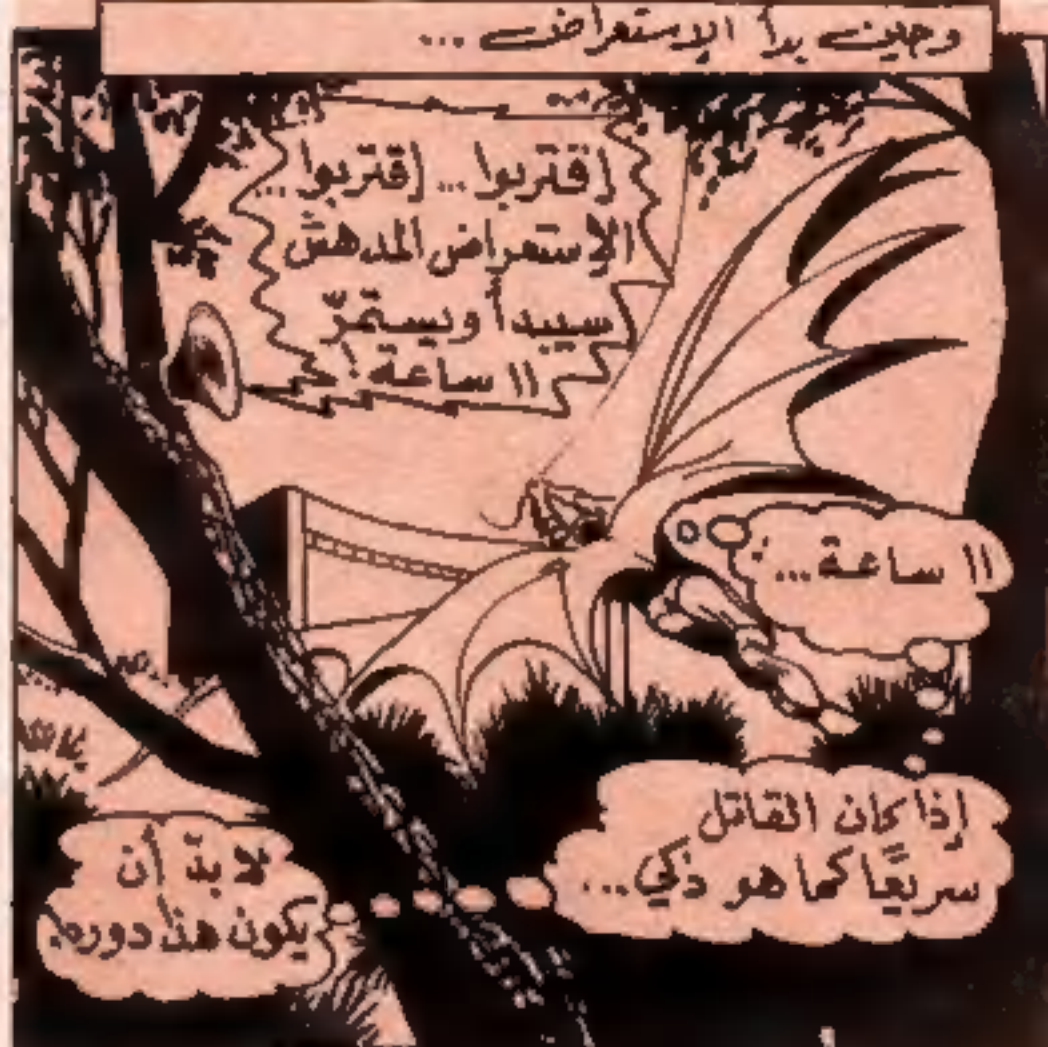 وحين بدأ الإستعراض ...
إقتربوا ... إقتربوا ...
الإستعراض المدهش
سيبدأ ويستمرّ
١١ ساعة !
١١ ساعة ...
إذا كان القاتل
سريعًا كما هو ذكي ...
لا بدّ أن
يكون هذا دوره.